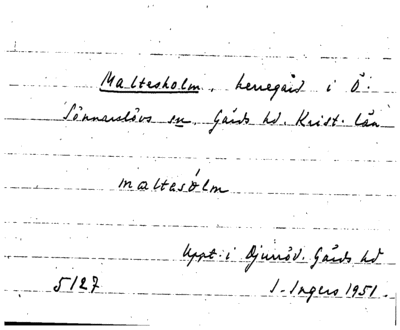 Maltesholm, herregård i Ö.
Sönnarslövs sn, Gärds hd. Krist. län
maltasólm
Uppt. i Djurröd. Gärds hd
5127 I. Ingers 1951.